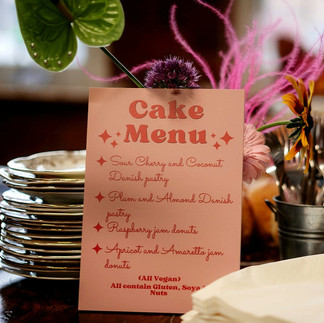 Cake
Menu
Sour Cherry and Coconut
Danish pastry
Plum and Almond Danish
pastry
Raspberry jam donuts
Apricot and Amaretto jam
donuts
(All Vegan)
All contain Gluten, Soya
Nuts